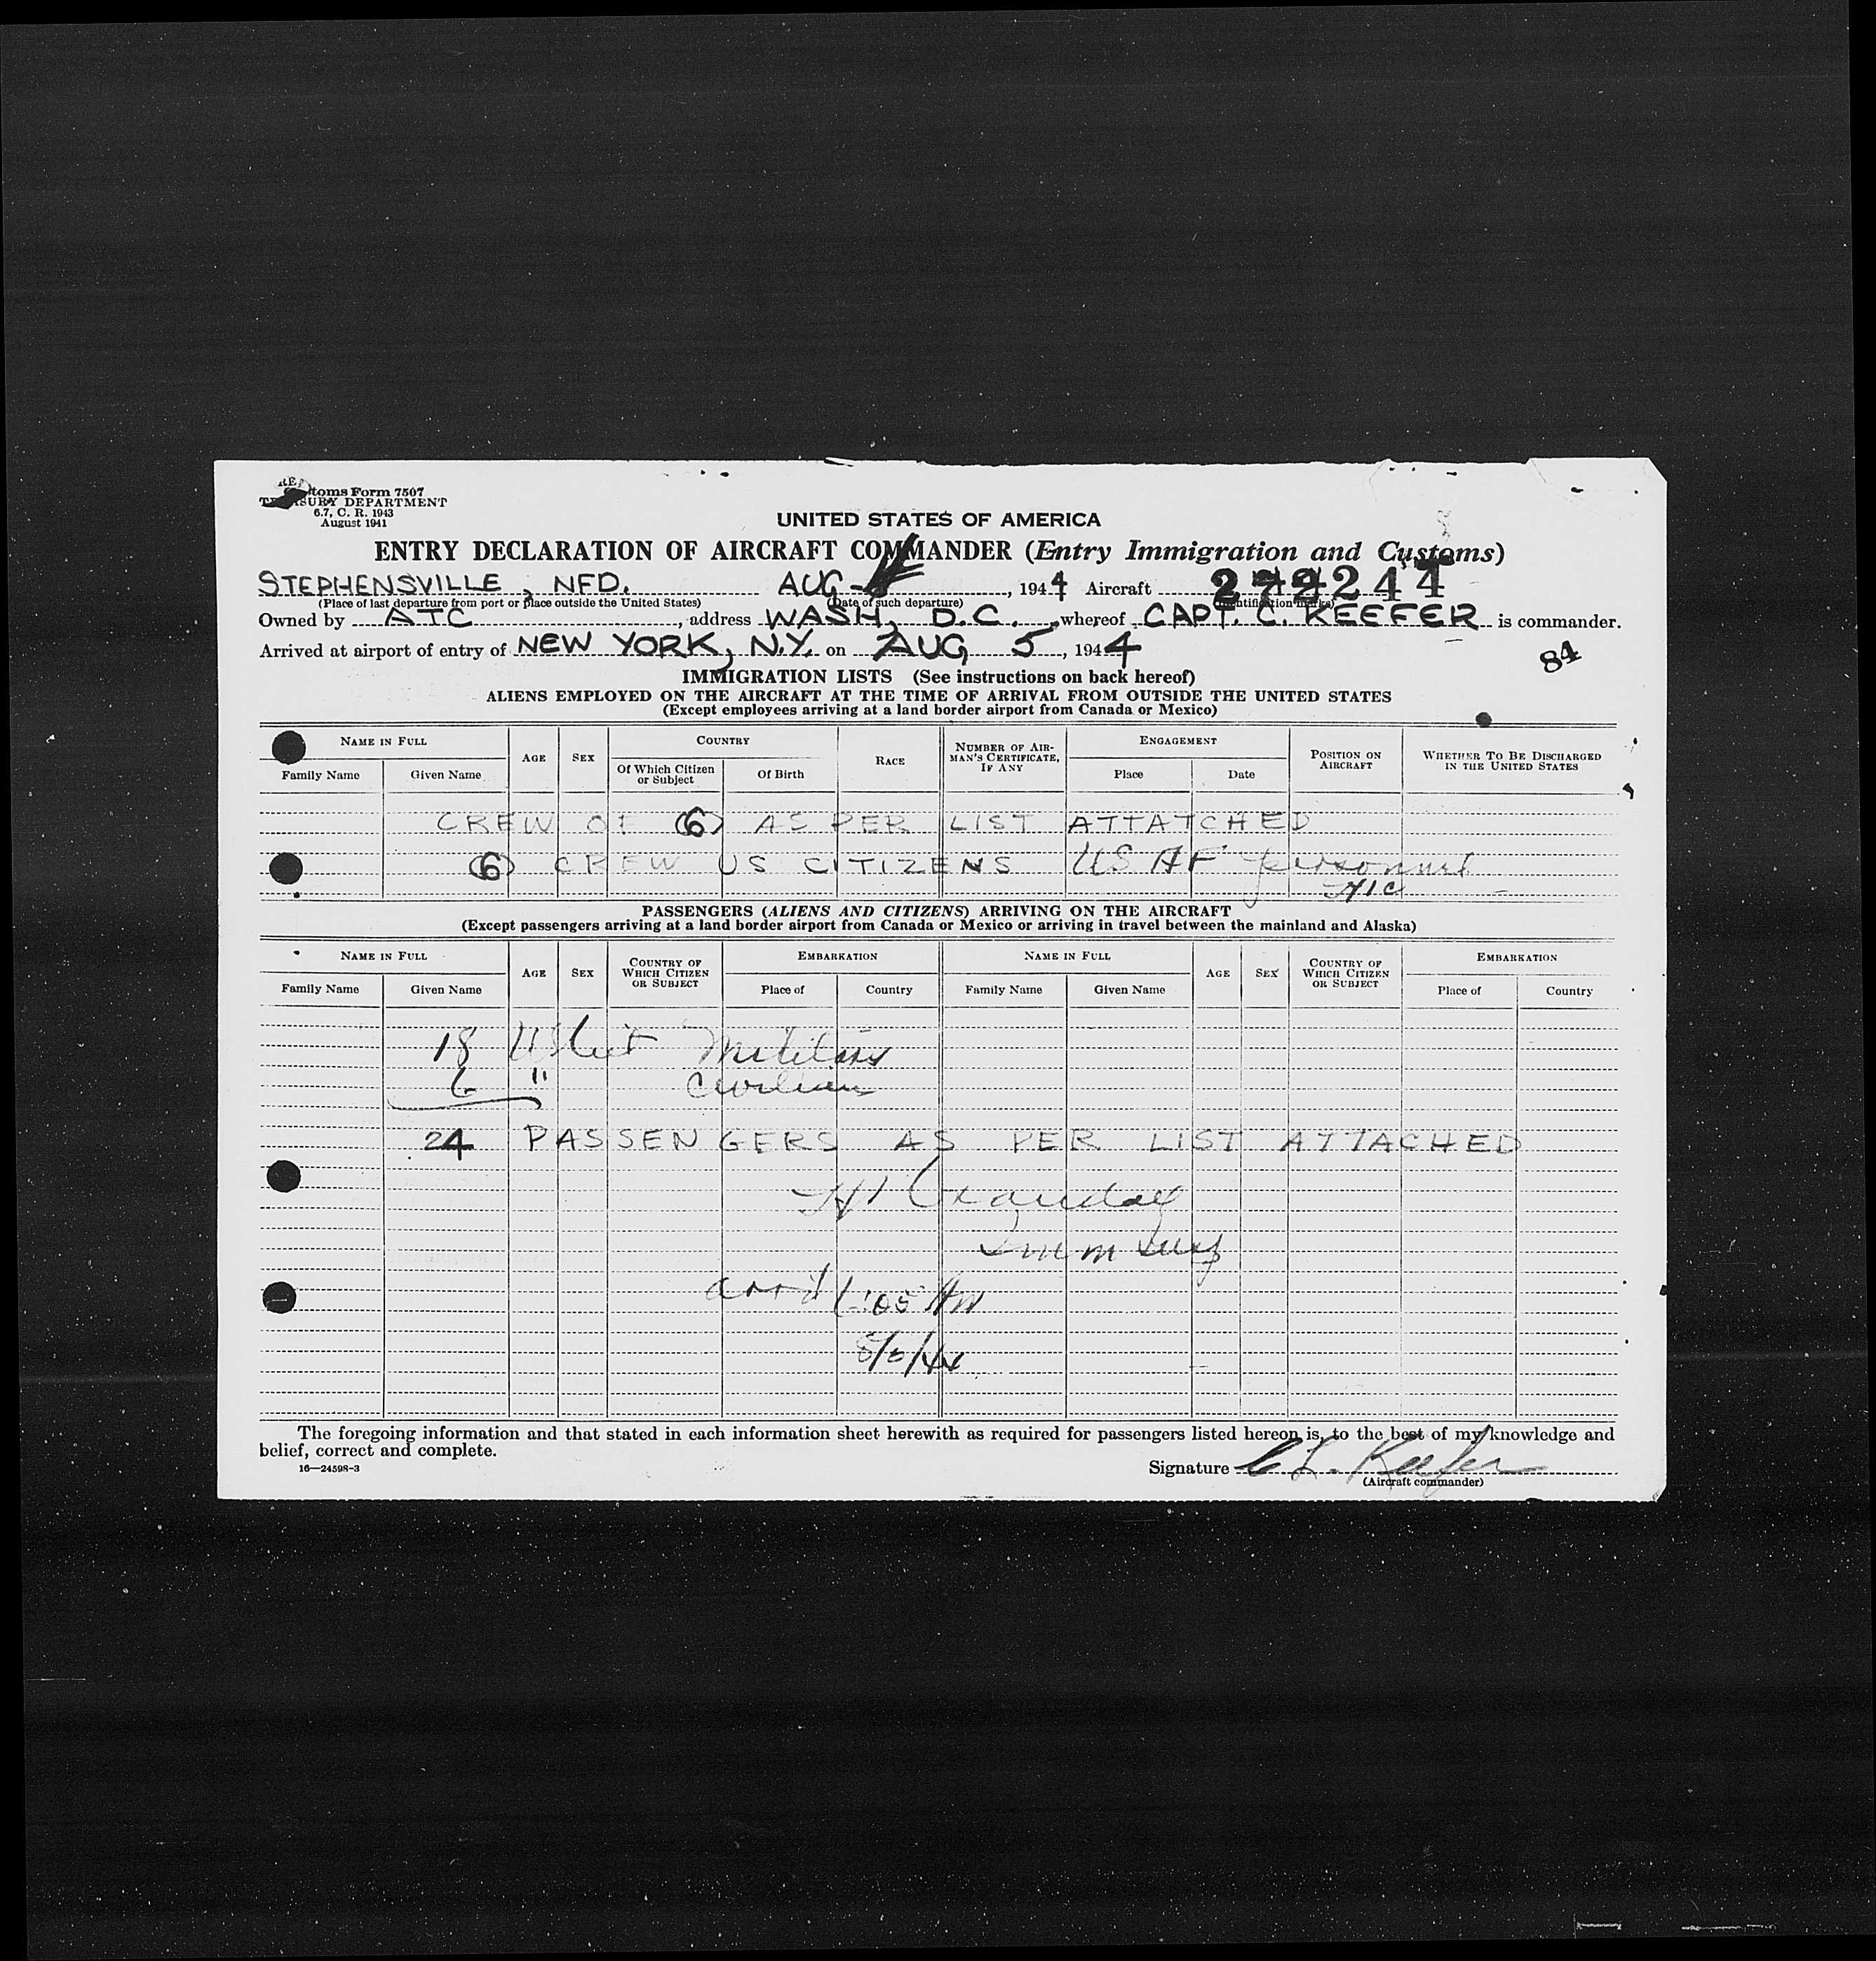 Customs Form 7507
TREASURY DEPARTMENT
6.7, C. R. 1943
August 1941
UNITED STATES OF AMERICA
ENTRY DECLARATION OF AIRCRAFT COMMANDER (Entry Immigration and Customs)
STEPHENSVILLE, NFD. AUG 4, 1944 Aircraft 272244
(Place of last departure from port or place outside the United States) (Date of such departure) (Identification marks)
Owned by ATC, address WASH, D.C., whereof CAPT. C. KEEFER is commander.
Arrived at airport of entry of NEW YORK, N.Y. on AUG 5, 1944
84
IMMIGRATION LISTS (See instructions on back hereof)
ALIENS EMPLOYED ON THE AIRCRAFT AT THE TIME OF ARRIVAL FROM OUTSIDE THE UNITED STATES
(Except employees arriving at a land border airport from Canada or Mexico)
NAME IN FULL AGE SEX COUNTRY RACE NUMBER OF AIRMAN'S CERTIFICATE, IF ANY ENGAGEMENT POSITION ON AIRCRAFT WHETHER TO BE DISCHARGED IN THE UNITED STATES
Family Name Given Name Of Which Citizen or Subject Of Birth Place Date
CREW OF (6) AS PER LIST ATTATCHED
(6) CREW US CITIZENS US AF personnel
PASSENGERS (ALIENS AND CITIZENS) ARRIVING ON THE AIRCRAFT
(Except passengers arriving at a land border airport from Canada or Mexico or arriving in travel between the mainland and Alaska)
NAME IN FULL AGE SEX COUNTRY OF WHICH CITIZEN OR SUBJECT EMBARKATION NAME IN FULL AGE SEX COUNTRY OF WHICH CITIZEN OR SUBJECT EMBARKATION
Family Name Given Name Place of Country Family Name Given Name Place of Country
18 US Cit Military
6 " Civilian
24 PASSENGERS AS PER LIST ATTACHED
Imm Insp
arr'd :05 AM
8/5/44
The foregoing information and that stated in each information sheet herewith as required for passengers listed hereon is, to the best of my knowledge and
belief, correct and complete.
16—24598-3
Signature C L. Keefer
(Aircraft commander)